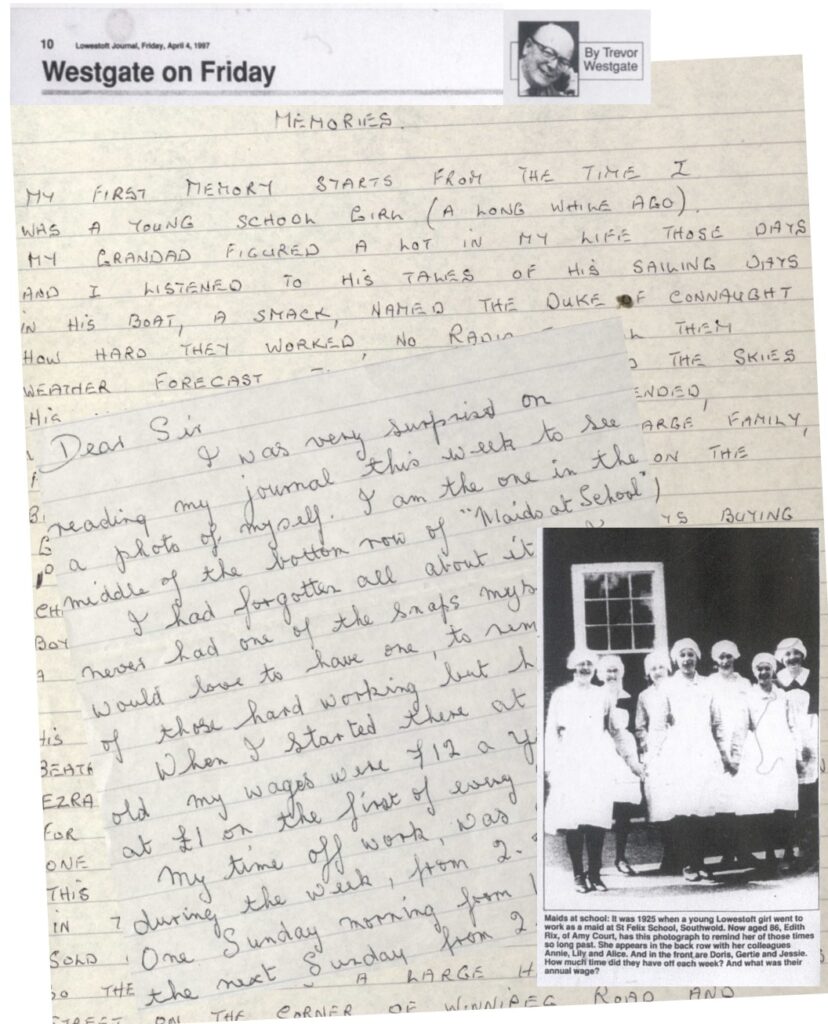 10 Lowestoft Journal, Friday, April 4, 1997
Westgate on Friday
By Trevor
Westgate
MEMORIES.
MY FIRST MEMORY STARTS FROM THE TIME I
WAS A YOUNG SCHOOL GIRL (A LONG WHILE AGO).
MY GRANDAD FIGURED A LOT IN MY LIFE THOSE DAYS
AND I LISTENED TO HIS TALES OF HIS SAILING DAYS
IN HIS BOAT, A SMACK, NAMED THE DUKE OF CONNAUGHT
HOW HARD THEY WORKED, NO RADIO THEM
WEATHER FORECAST THE SKIES
HIS ENDED,
ARGE FAMILY,
ON THE
YS BUYING
BOY
A
HIS
BEATH
EZRA
FOR
ONE
THIS
IN
SOLD
THE A LARGE H
STREET ON THE CORNER OF WINNIPEG ROAD AND
Dear Sir
I was very surprised on
reading my journal this week to see
a photo of myself. I am the one in the
middle of the bottom row of "Maids at School")
I had forgotten all about it
never had one of the snaps mys
would love to have one, to rem
of those hard working but h
When I started there at
old my wages were £12 a y
at £1 on the first of every
My time off work, was
during the week, from 2.
One Sunday morning from 1
the next Sunday from 2
Maids at school: It was 1925 when a young Lowestoft girl went to
work as a maid at St Felix School, Southwold. Now aged 86, Edith
Rix, of Amy Court, has this photograph to remind her of those times
so long past. She appears in the back row with her colleagues
Annie, Lily and Alice. And in the front are Doris, Gertie and Jessie.
How much time did they have off each week? And what was their
annual wage?